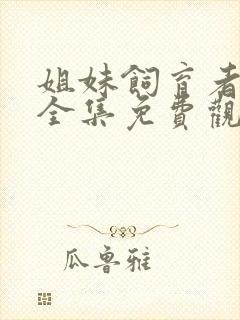 姐妹飼育者
全集免費觀
瓜魯雅